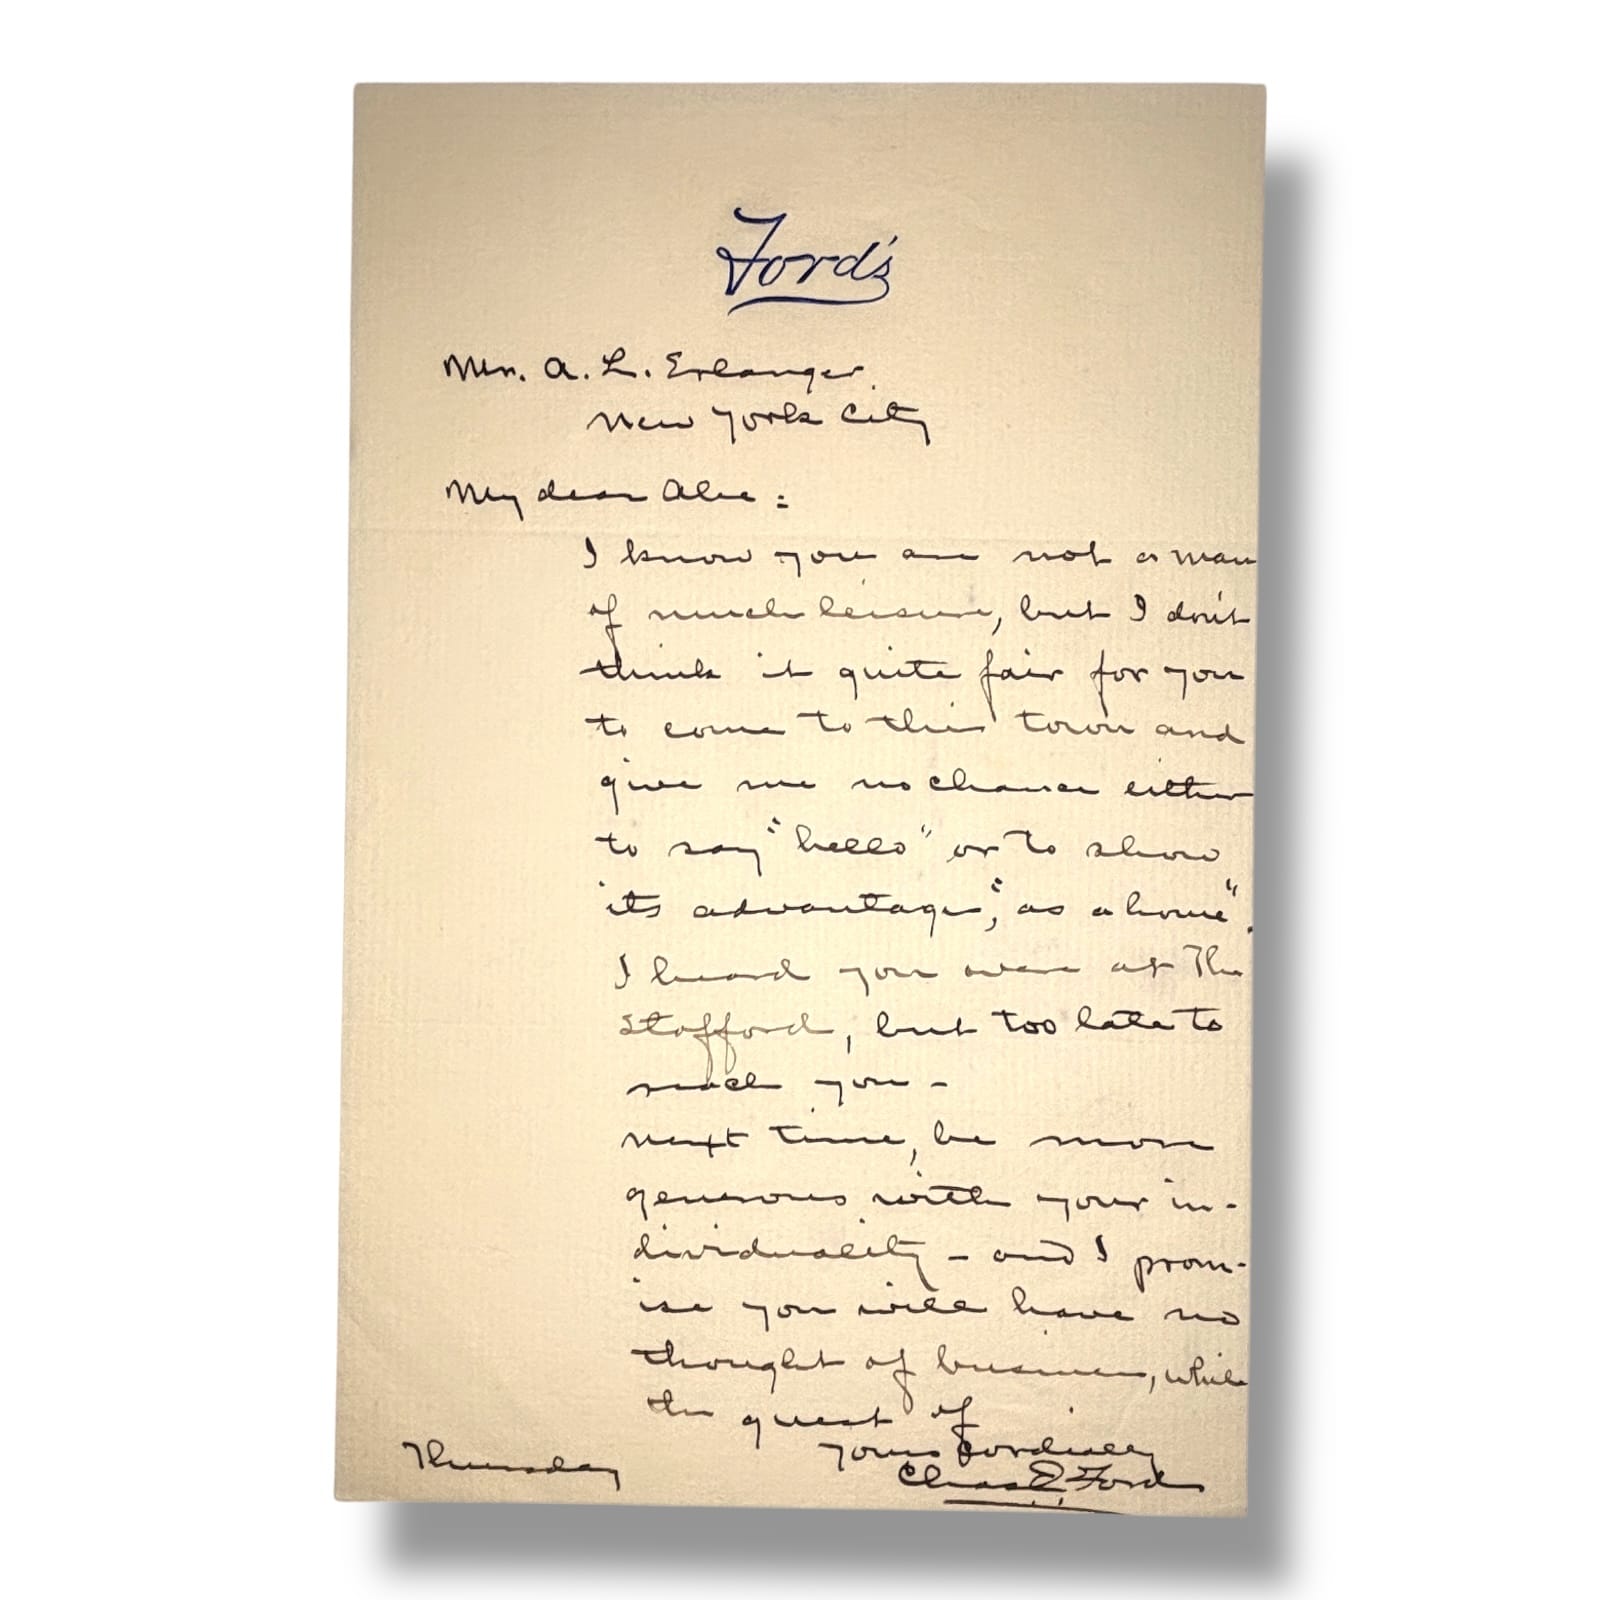 Ford's
Mr. A. L. Erlanger
New York City
My dear Abe:
I know you are not a man
of much leisure, but I don't
think it quite fair for you
to come to this town and
give me no chance either
to say "hello" or to show
its advantages, "as a home".
I heard you were at The
Stafford, but too late to
reach you -
next time, be more
generous with your in-
dividuality - and I prom-
ise you will have no
thought of business, while
the guest of
Yours Cordially
Chas E. Ford
Thursday